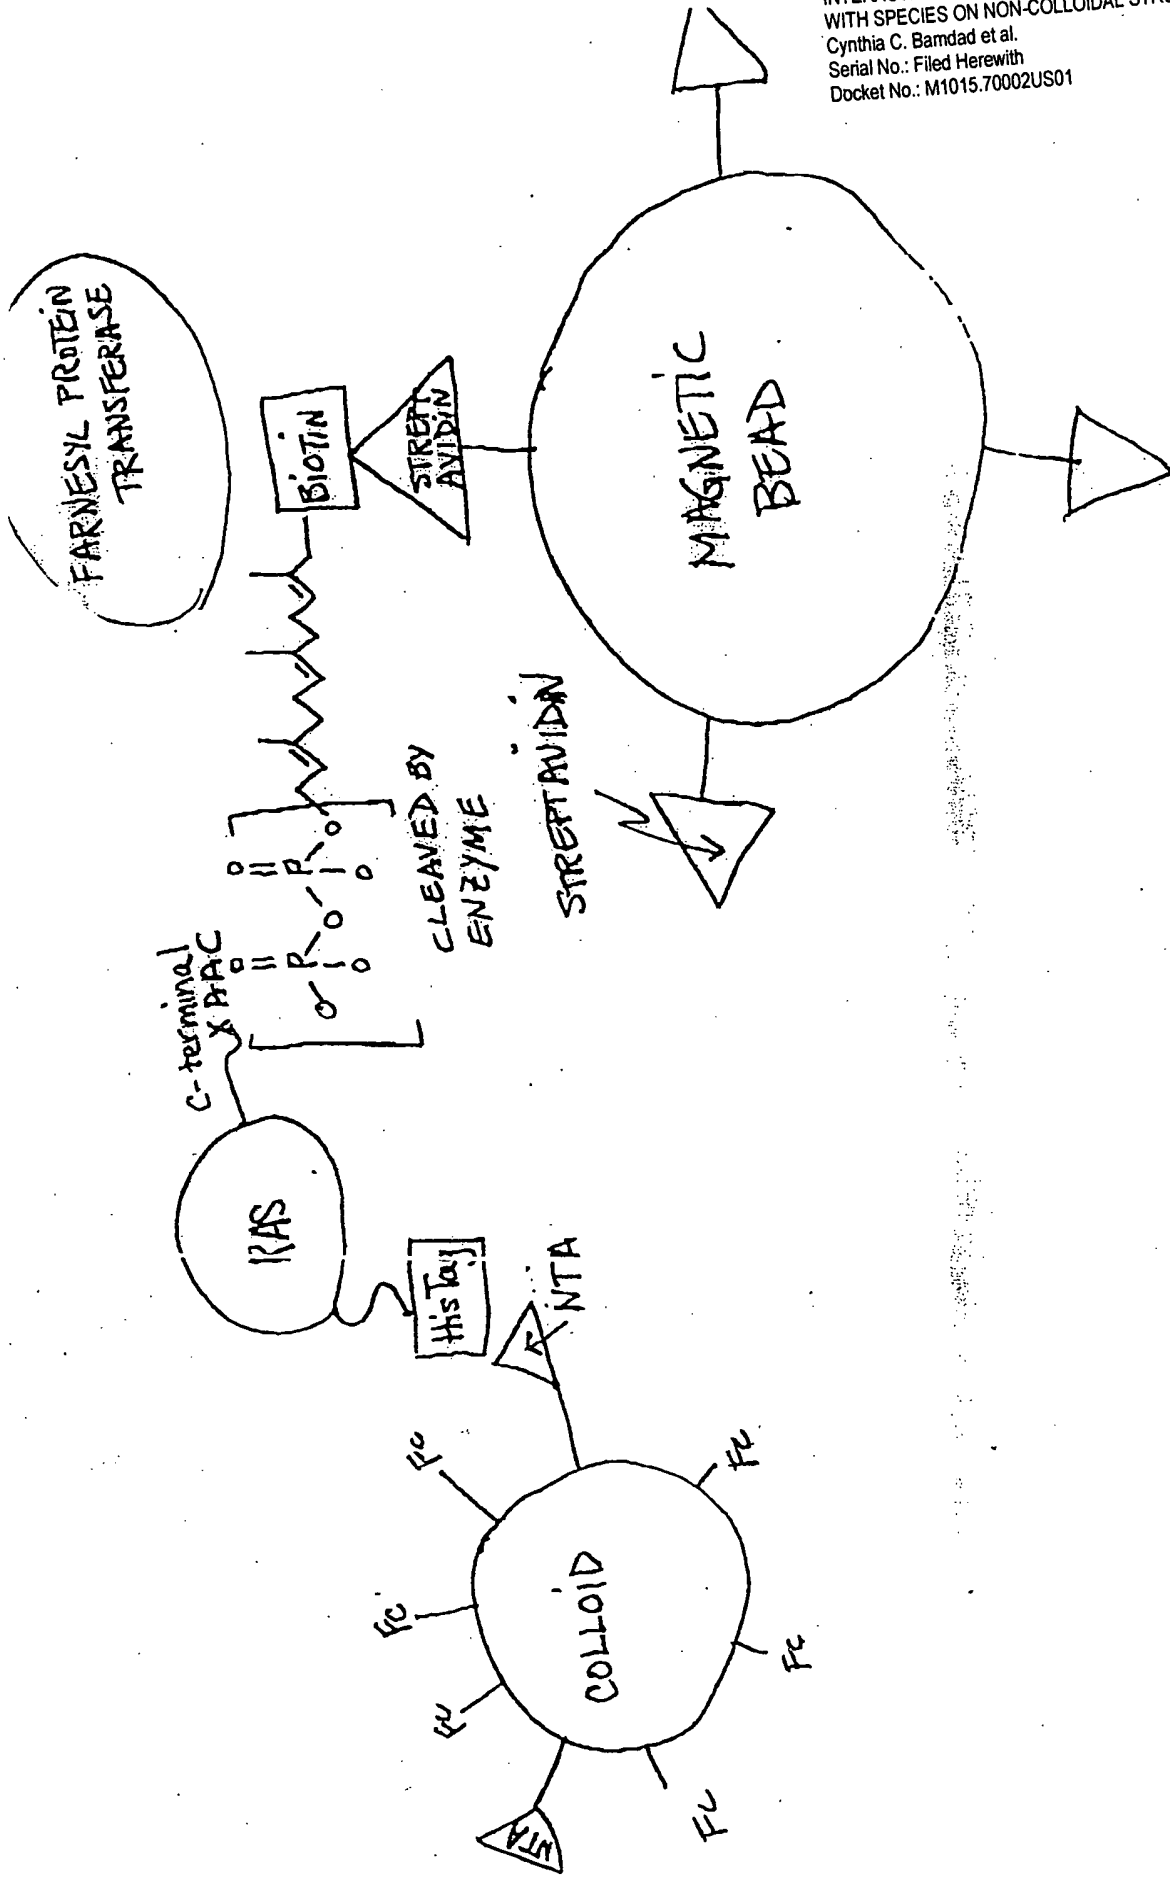 WITH SPECIES ON NON-COLLOIDAL
Cynthia C. Bamdad et al.
Serial No.: Filed Herewith
Docket No.: M1015.70002US01
FARNESYL PROTEIN
TRANSFERASE
BIOTIN
STREPT
AVIDIN
MAGNETIC
BEAD
STREPTAVIDIN
CLEAVED BY
ENZYME
C-terminal
XAAC
O O
|| ||
O P O P O
O O
RAS
His Tag
NTA
COLLOID
NTA
Fc
Fc
Fc
Fc
Fc
Fc